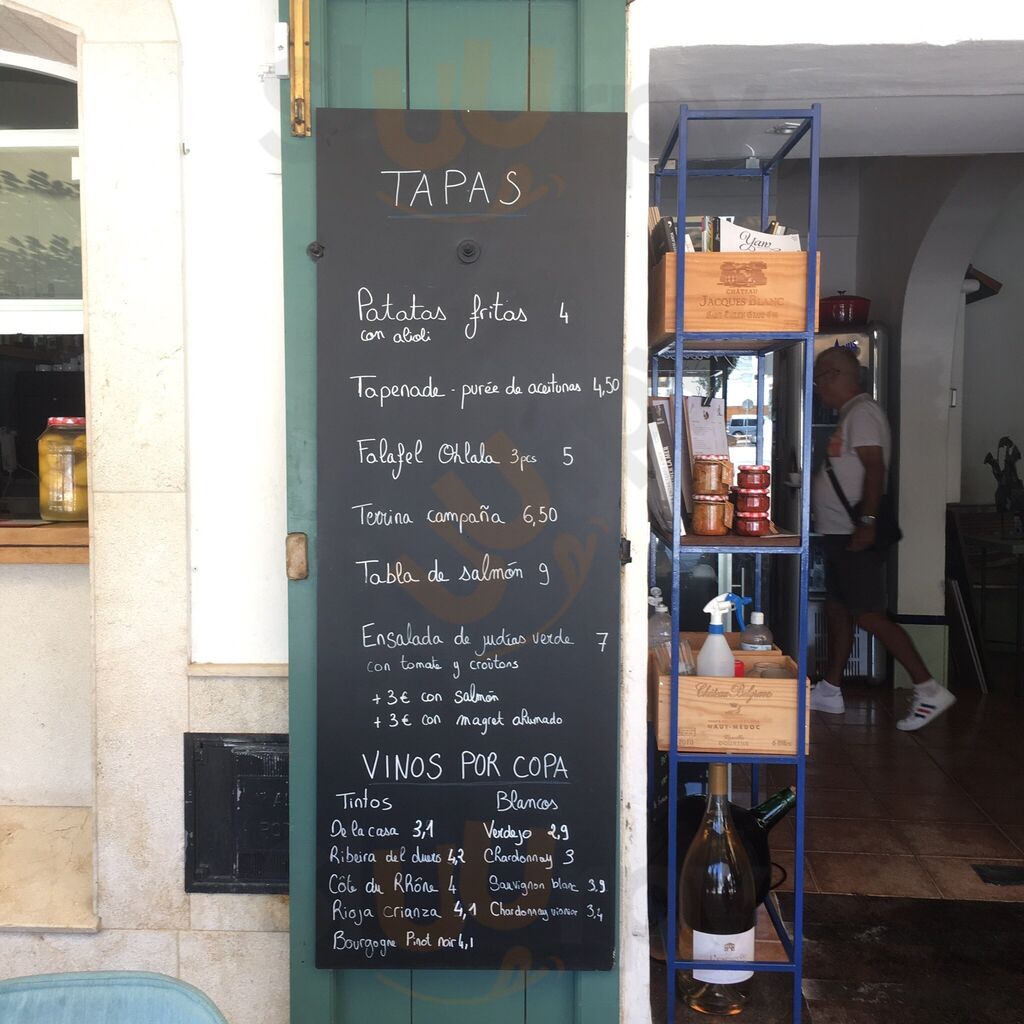 TAPAS
Patatas fritas 4
con alioli
Tapenade - purée de aceitunas 4,50
Falafel Ohlala 3pcs 5
Terrina campaña 6,50
Tabla de salmón 9
Ensalada de judías verde 7
con tomate y croûtons
+3€ con salmón
+3€ con magret ahumado
VINOS POR COPA
Tintos Blancos
De la casa 3,1 Verdejo 2,9
Ribeira del duero 4,2 Chardonnay 3
Côte du Rhône 4 Sauvignon blanc 3,9
Rioja crianza 4,1 Chardonnay vionier 3,4
Bourgogne Pinot noir 4,1
Yam
CHÂTEAU
JACQUES BLANC
HAUT-MEDOC
DOURTHE